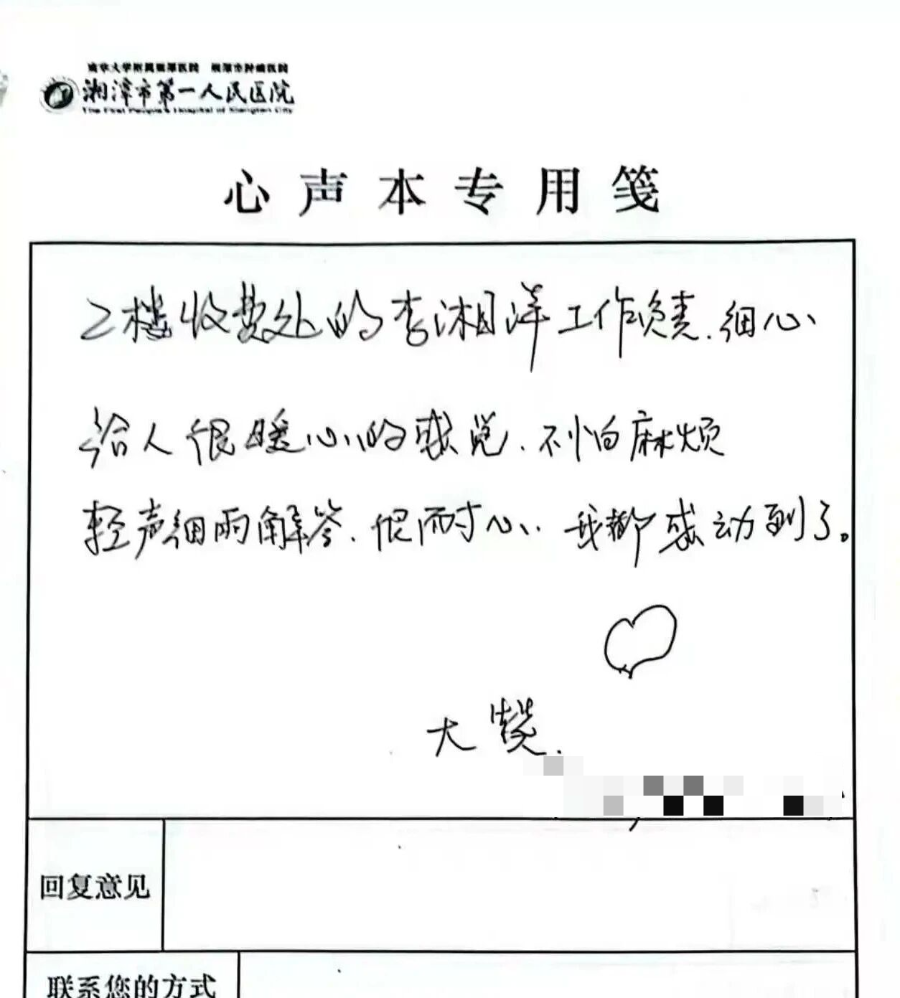 南华大学附属湘潭医院 湘潭市肿瘤医院
湘潭市第一人民医院
The First People's Hospital of Xiangtan City
心声本专用笺
2楼收费处的李湘洋工作负责.细心
给人很暖心的感觉.不怕麻烦
轻声细雨解答.很耐心.我都感动到了。
大赞.
回复意见
联系您的方式